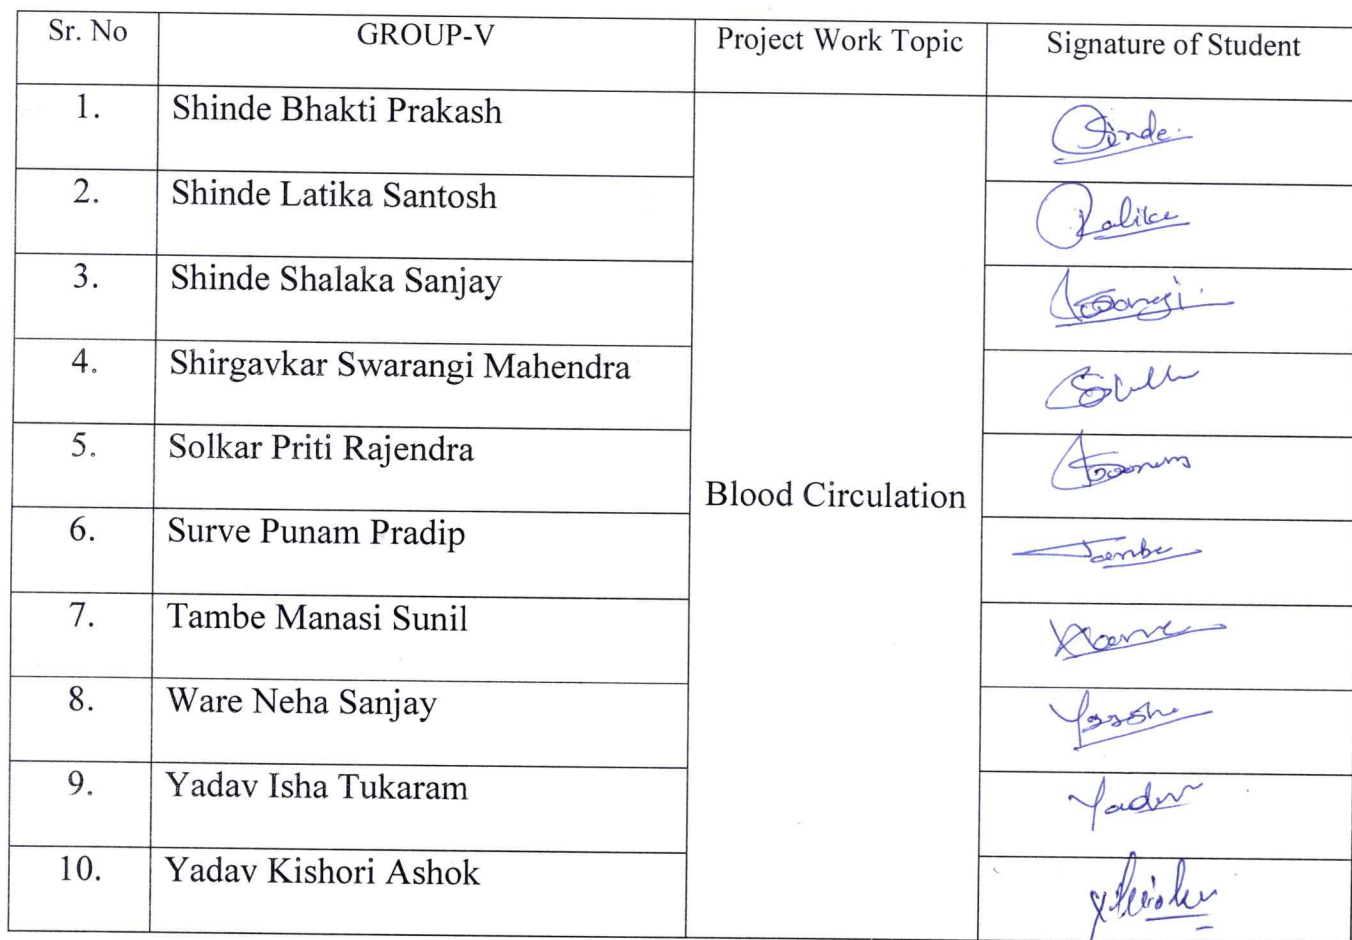 Sr. No GROUP-V Project Work Topic Signature of Student
1. Shinde Bhakti Prakash Shinde
2. Shinde Latika Santosh
3. Shinde Shalaka Sanjay
4. Shirgavkar Swarangi Mahendra
5. Solkar Priti Rajendra
Blood Circulation
6. Surve Punam Pradip Tambe
7. Tambe Manasi Sunil
8. Ware Neha Sanjay
9. Yadav Isha Tukaram Yadav
10. Yadav Kishori Ashok